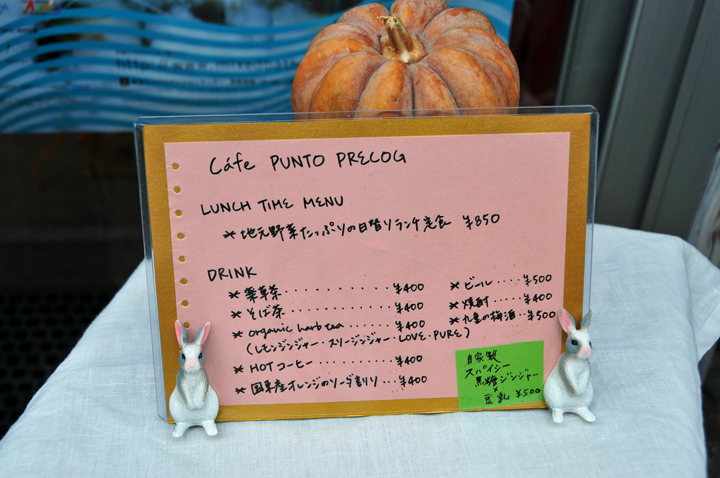 Cafe PUNTO PRECOG
LUNCH TIME MENU
* 地元野菜たっぷりの日替りランチ定食 ¥850
DRINK
* 薬草茶 .......... ¥400
* そば茶 .......... ¥400
* organic herb tea ....... ¥400
(レモンジンジャー・スリージンジャー・LOVE・PURE)
* HOTコーヒー ....... ¥400
* 国産オレンジのソーダ割り ... ¥400
* ビール ..... ¥500
* 焼酎 ..... ¥400
* 九重の梅酒 .. ¥500
自家製
スパイシー
黒糖ジンジャー
×
豆乳 ¥500